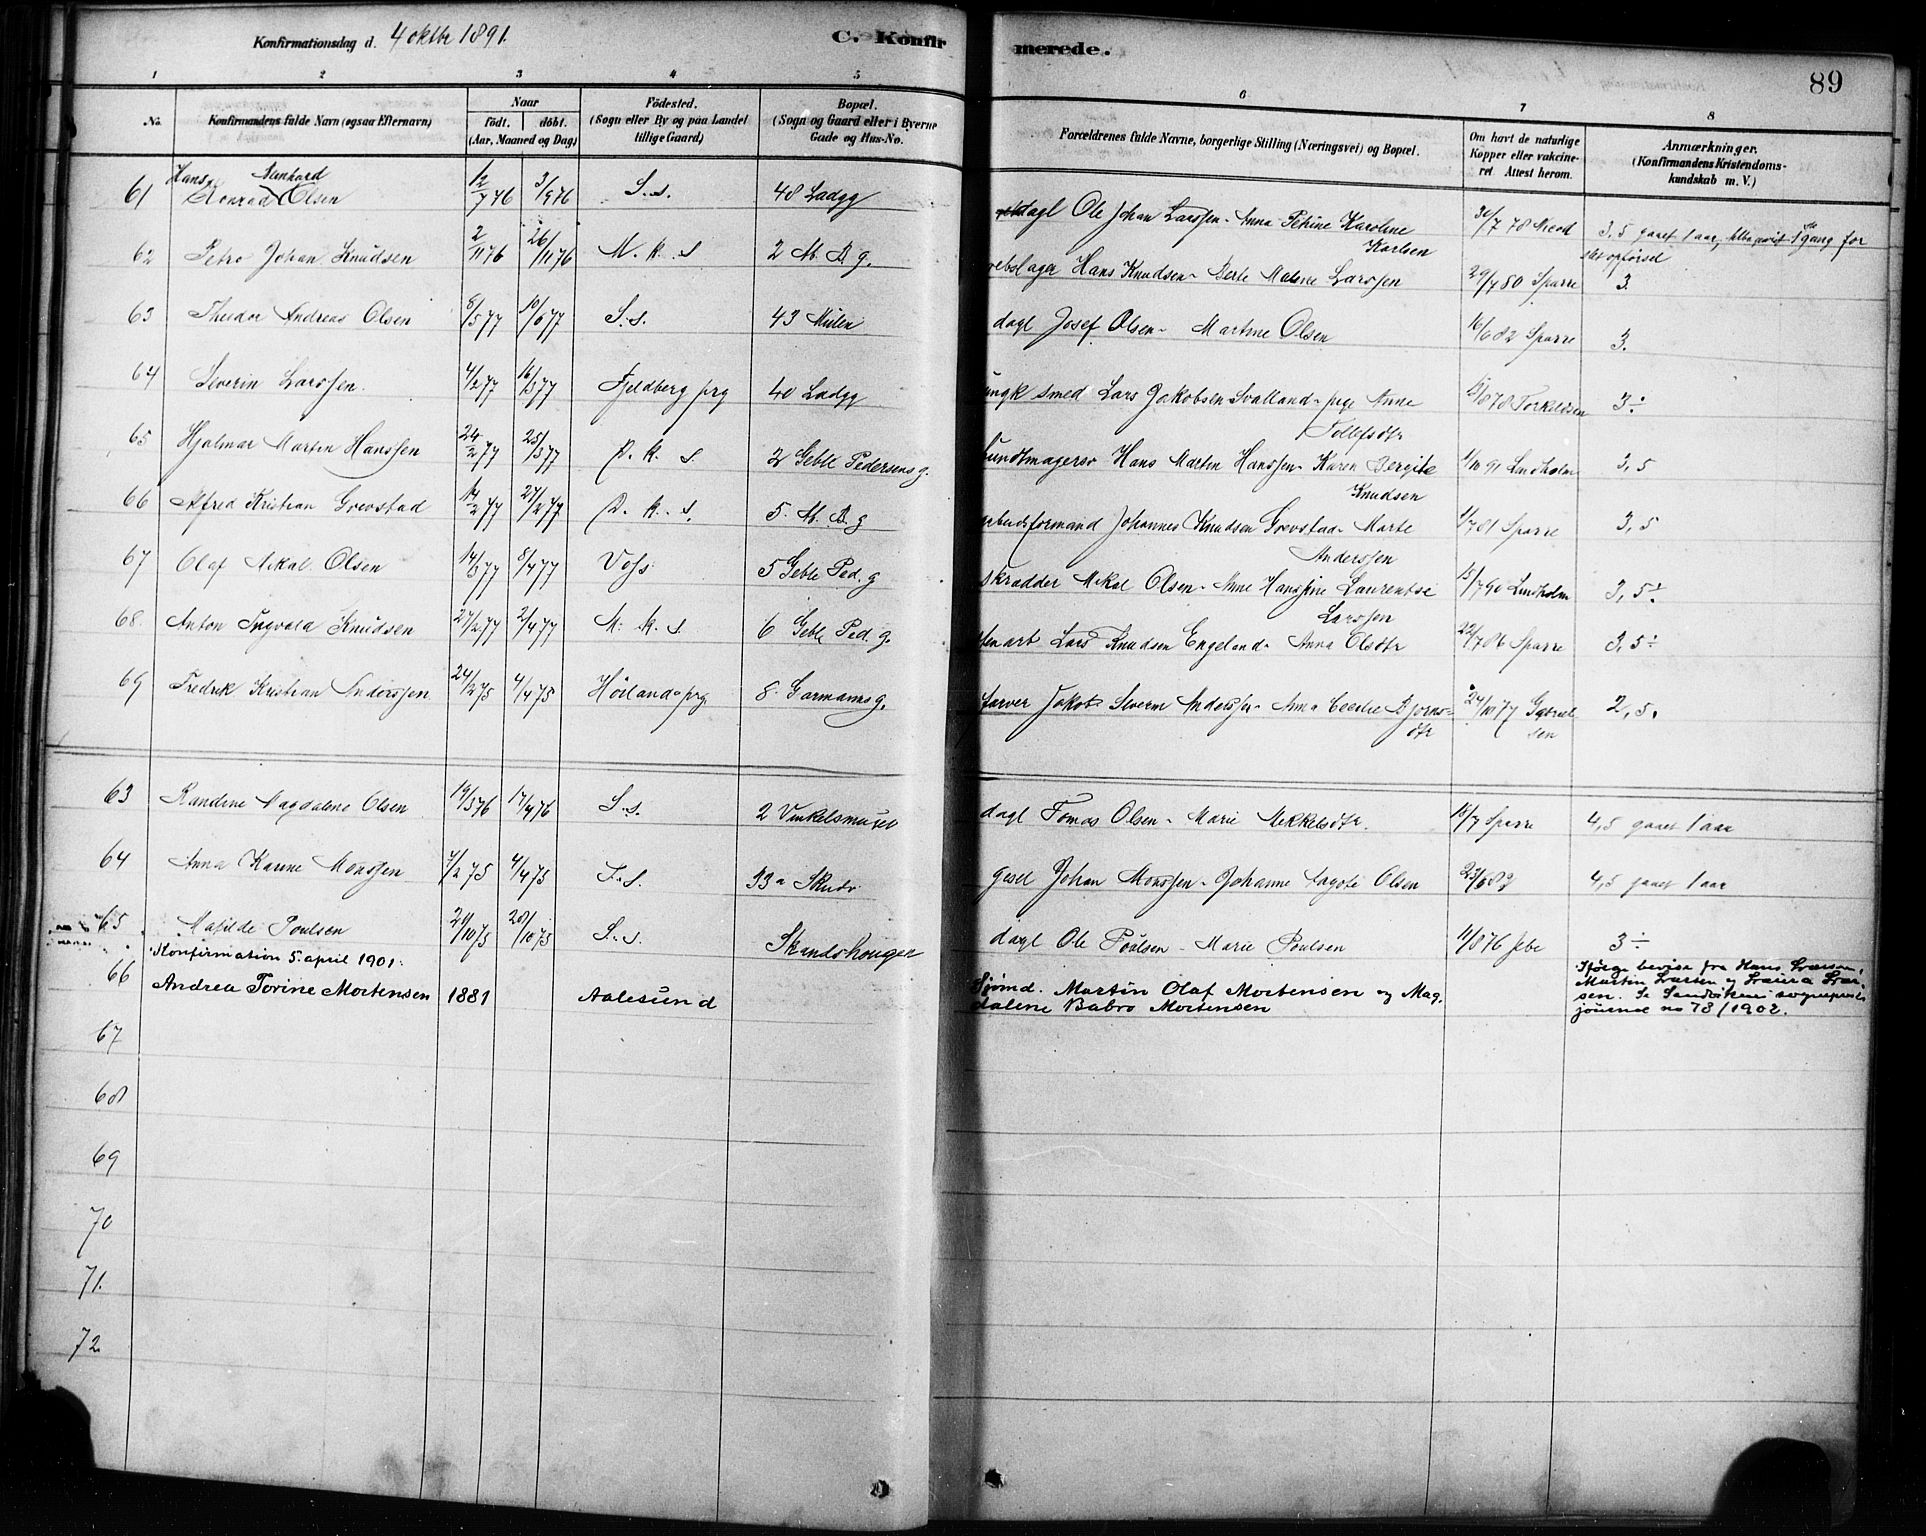 Konfirmationsdag d. 4 oktbr 1891.
C. Konfir
merede.
89
1 2 3 4 5 6 7 8
No.
Konfirmandens fulde Navn (ogsaa Efternavn)
Naar
födt. döbt.
(Aar, Maaned og Dag)
Födested.
(Sogn eller By og paa Landet
tillige Gaard)
Bopæl.
(Sogn og Gaard eller i Byerne
Gade og Hus-No.
Forældrenes fulde Navne, borgerlige Stilling (Næringsvei) og Bopæl.
Om havt de naturlige
Kopper eller vakcine-
ret. Attest herom.
Anmærkninger.
(Konfirmandens Kristendoms-
kundskab m. V.)
Hans
61 Konrad Olsen 12/7 76 3/9 76 S. s. 40 Ladgg
dagl Ole Johan Larssen - Anna Petrine Karoline
Karlsen
3,5 gaaet 1 aar, gang for
slet opførsel
62 Petro Johan Knudsen 2/11 76 26/11 76 M. k. s 2 M. B. g.
Hans Knudsen - Berte Malene Larssen 29/7 80 Sparre 3.
63 Theodor Andreas Olsen 8/5 77 10/6 77 S. s. 43 Mulen
dagl Josef Olsen - Martine Olsen 16/6 82 Sparre 3.
64 Severin Larssen. 4/2 77 16/3 77 Fjeldberg prg 40 Ladgg
smed Lars Jakobsen Svalland - pige Anne
Tollefsdtr
Torkildsen 3÷
65 Hjalmar Martin Hanssen 24/2 77 25/3 77 D. k. s. 2 Geble Pedersens g.
Hans Martin Hanssen - Karen Bergite
Knudsen
Lindholm 3,5
66 Alfred Kristian Grevstad 14/2 77 27/2 77 D. k. s. 5. M. B. g
arbeidsformand Johannes Knudsen Grevstad - Marte
Anderssen
1/7 81 Sparre 3,5
67 Olaf Mikal Olsen 14/3 77 8/4 77 Voss 5 Geble Ped. g
skrædder Mikal Olsen - Anne Hanssine Laurentse
Larssen
15/7 90 Lindholm 3,5÷
68. Anton Ingvald Knudsen 27/2 77 2/4 77 M. k. s. 6 Geble Ped. g.
Lars Knudsen Engeland - Anna Olsdtr 22/7 86 Sparre 3,5÷
69 Fredrik Kristian Anderssen 24/2 75 4/4 75 Höilands prg. 8. Garmanns g.
farver Jakob Severin Anderssen - Anna Cecilie Bjørns-
dtr
24/10 77 Gabriel
sen
2,5.
63 Randine Magdalene Olsen 19/3 76 17/4 76 S. s. 2 Vinkelsmuset
dagl Tomas Olsen - Marie Mikkelsdtr. 18/7 Sparre 4,5 gaaet 1 aar
64 Anna Karine Monssen 7/2 75 4/4 75 F. S. 33a Skudv.
gesel Johan Monssen - Johanne Agote Olsen 23/6 82 4,5 gaaet 1 aar
65 Matilde Poulsen 21/10 75 28/10 75 S. s. Skandshougen
dagl Ole Poulsen - Marie Poulsen 11/8 76 Jebe 3÷
Konfirmation 5. april 1901.
66 Andrea Torine Mortensen 1881 Aalesund
Sjømd. Martin Olaf Mortensen og Mag-
dalene Babro Mortensen
Ifølge bevis fra Hans Larsen,
Martin Larsen og Laura Lar-
sen. Se Sandvikens sogneprests
journal no 78/1902.
67
68
69
70
71.
72.